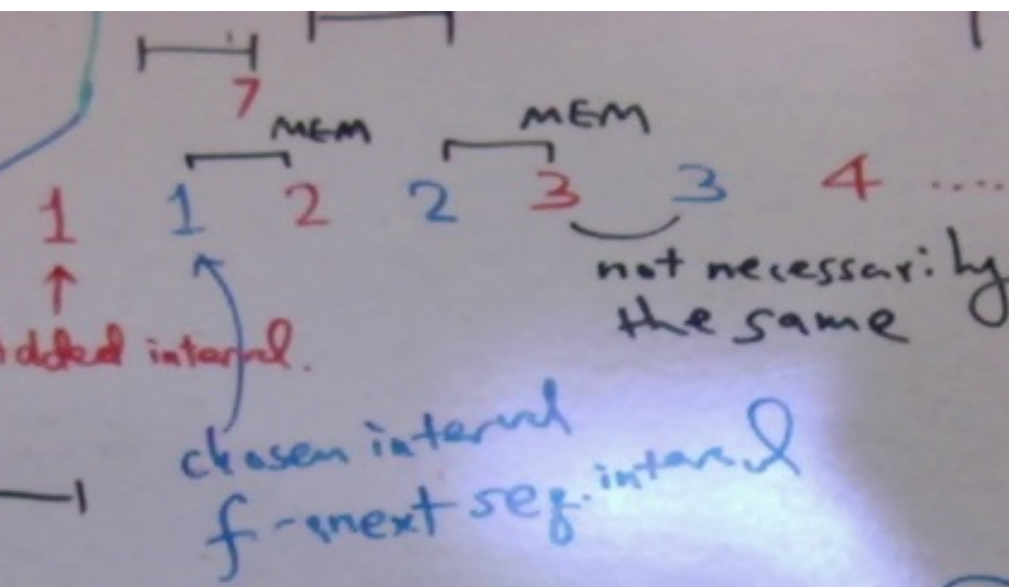 7
MEM MEM
1 1 2 2 3 3 4 .....
not necessarily
the same
added interval.
chosen interval
f-next seq. interval